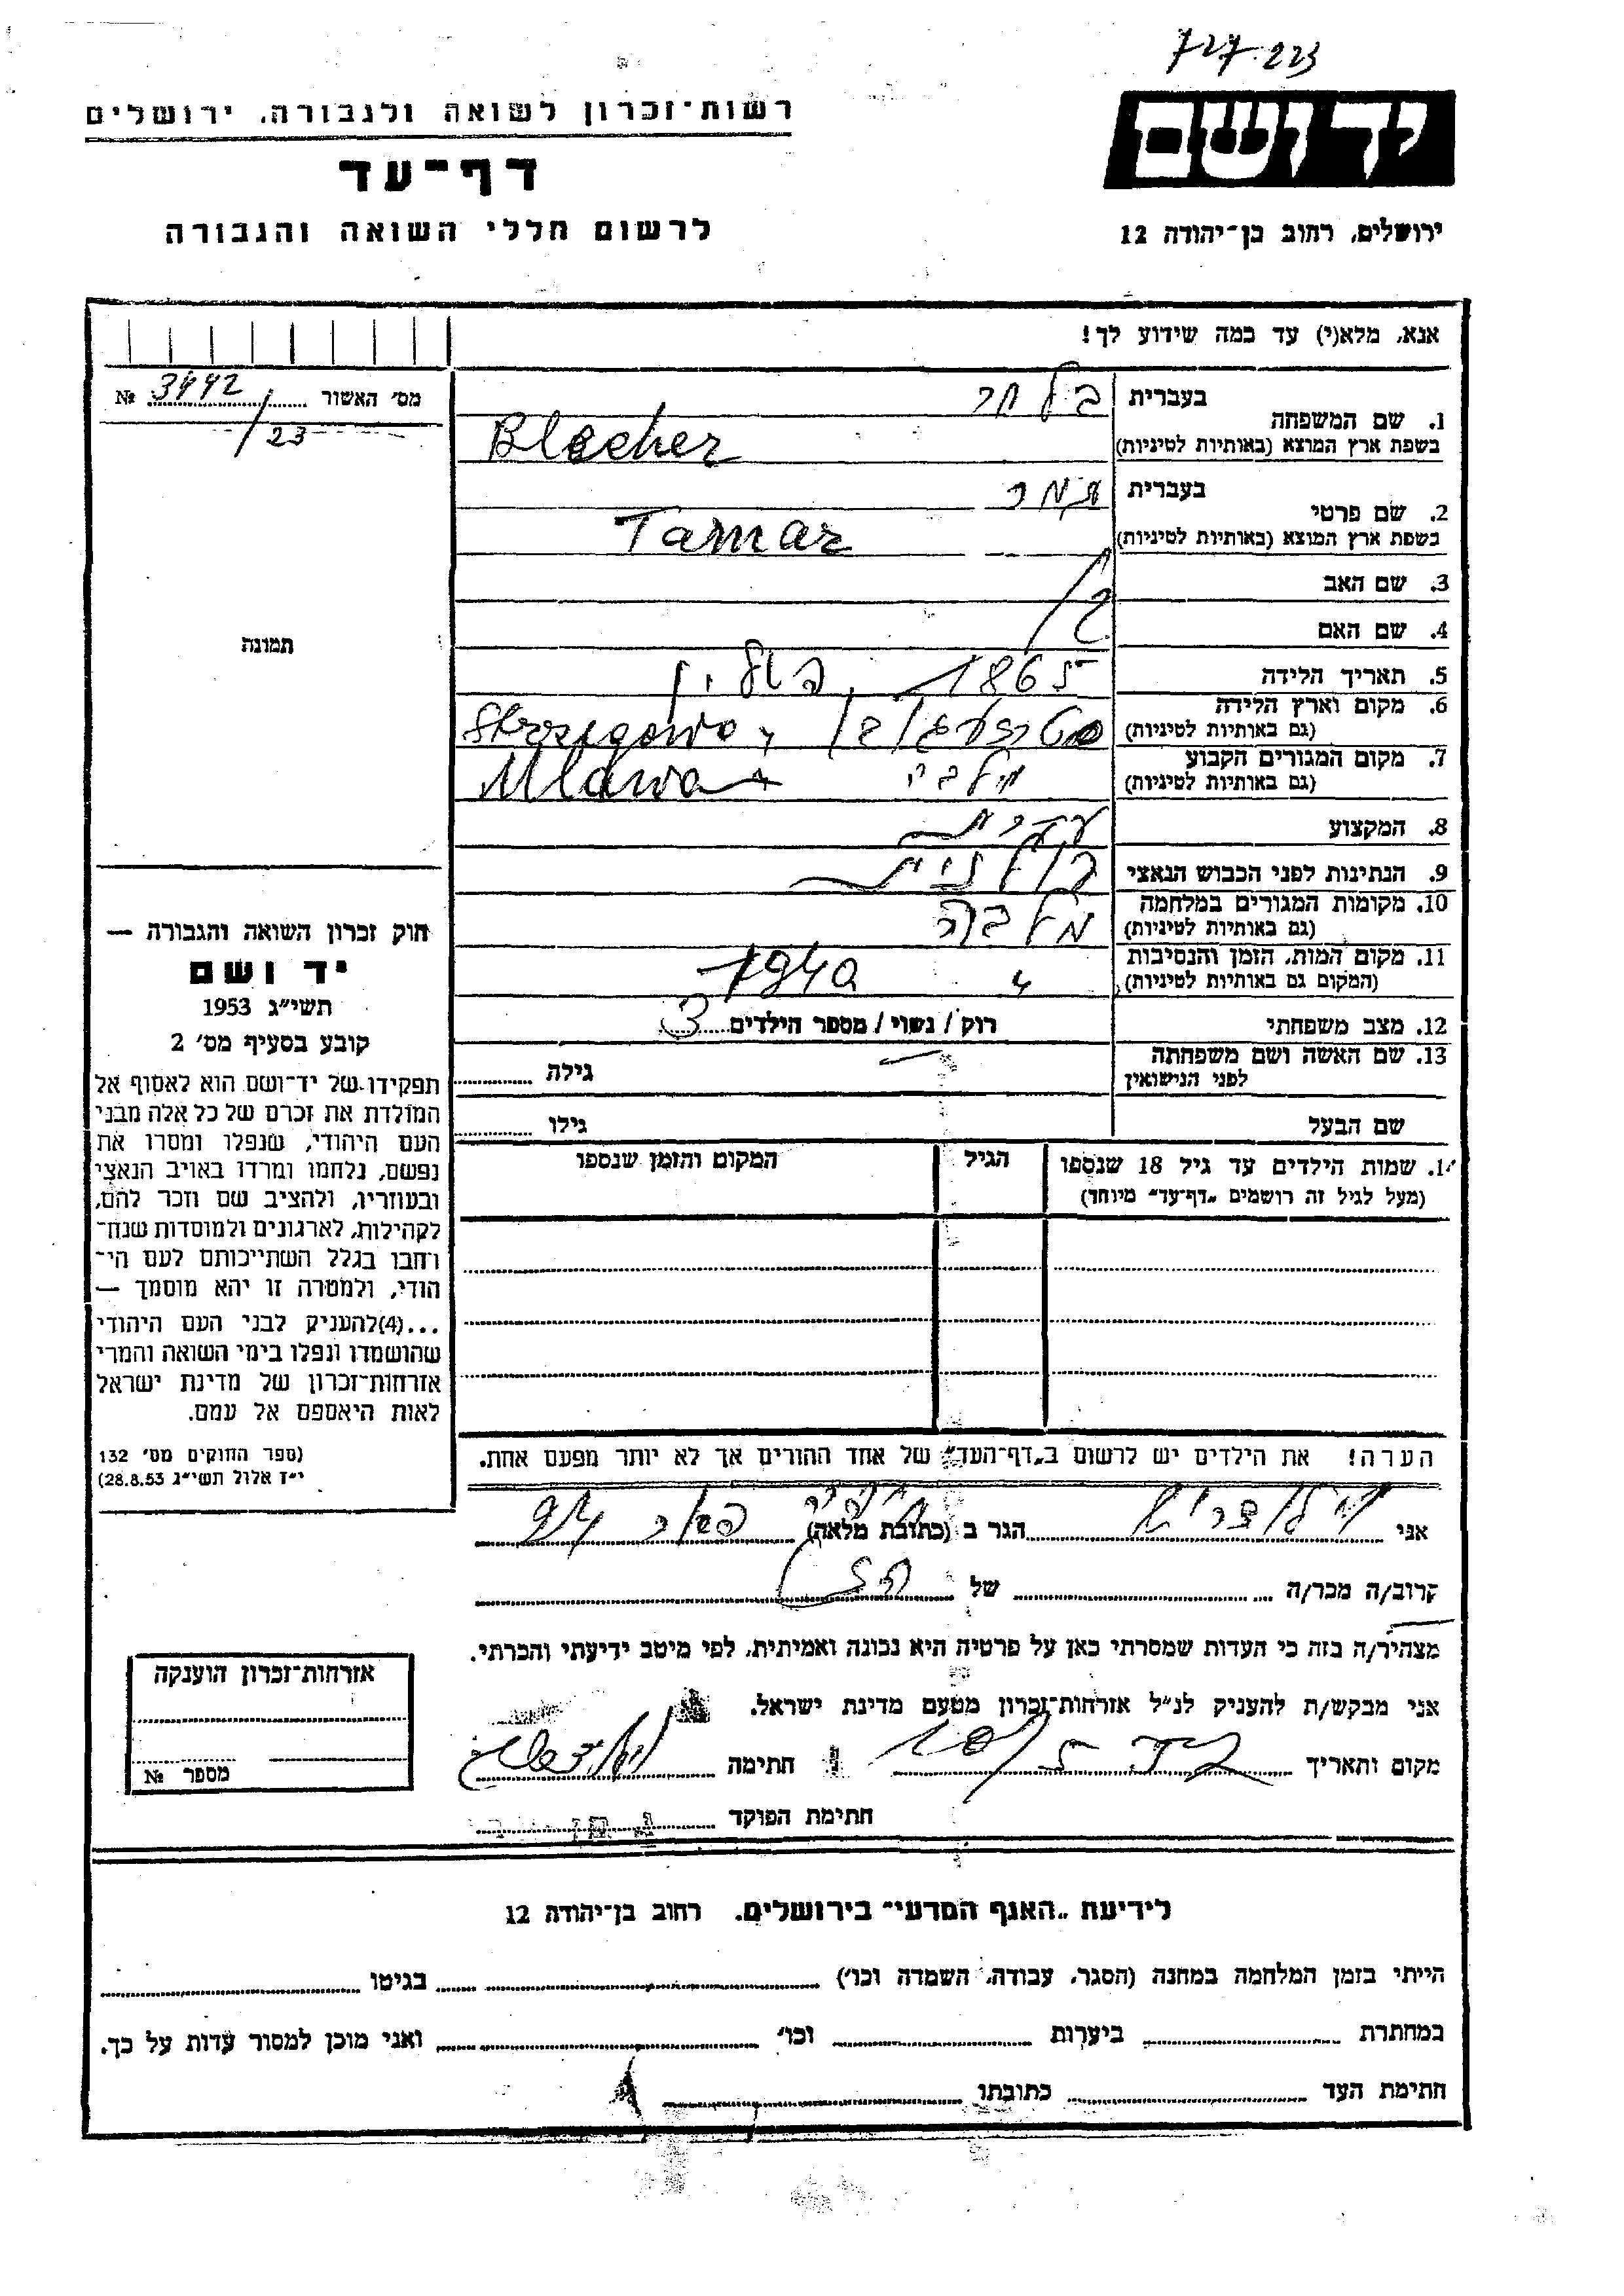 727.223
רשות־זכרון לשואה ולגבורה, ירושלים
יד ושם
דף־עד
לרשום חללי השואה והגבורה
ירושלים, רחוב בן־יהודה 12
אנא, מלא(י) עד כמה שידוע לך!
מס׳ האשור 3442 №
/23
בעברית בלחר
1. שם המשפחה
בשפת ארץ המוצא (באותיות לטיניות) Blecher
בעברית תמר
2. שם פרטי
בשפת ארץ המוצא (באותיות לטיניות) Tamar
3. שם האב
4. שם האם
תמונה
5. תאריך הלידה 1865
6. מקום וארץ הלידה
(גם באותיות לטיניות)
7. מקום המגורים הקבוע Mlawa
(גם באותיות לטיניות)
8. המקצוע
9. הנתינות לפני הכבוש הנאצי פולנית
10. מקומות המגורים במלחמה
(גם באותיות לטיניות)
11. מקום המות, הזמן והנסיבות 1940
(המקום גם באותיות לטיניות)
12. מצב משפחתי רוק / נשוי / מספר הילדים 3
13. שם האשה ושם משפחתה גילה
לפני הנישואין
שם הבעל גילו
חוק זכרון השואה והגבורה —
יד ושם
תשי״ג 1953
קובע בסעיף מס׳ 2
תפקידו של יד־ושם הוא לאסוף אל
המולדת את זכרם של כל אלה מבני
העם היהודי, שנפלו ומסרו את
נפשם, נלחמו ומרדו באויב הנאצי
ובעוזריו, ולהציב שם וזכר להם,
לקהילות, לארגונים ולמוסדות שנח־
רחבו בגלל השתייכותם לעם הי־
הודי, ולמטרה זו יהא מוסמך —
...(4)להעניק לבני העם היהודי
שהושמדו ונפלו בימי השואה והמרי
אזרחות־זכרון של מדינת ישראל
לאות היאספם אל עמם.
(ספר החוקים מס׳ 132
י״ז אלול תשי״ג 28.8.53)
1. שמות הילדים עד גיל 18 שנספו הגיל המקום והזמן שנספו
(מעל לגיל זה רושמים „דף־עד״ מיוחד)
הערה! את הילדים יש לרשום ב„דף־העד״ של אחד ההורים אך לא יותר מפעם אחת.
אני הגר ב (כתובת מלאה)
קרוב/ה מכר/ה של
מצהיר/ה בזה כי העדות שמסרתי כאן על פרטיה היא נכונה ואמיתית, לפי מיטב ידיעתי והכרתי.
אני מבקש/ת להעניק לנ״ל אזרחות־זכרון מטעם מדינת ישראל.
מקום ותאריך חתימה
חתימת הפוקד
אזרחות־זכרון הוענקה
מספר №
לידיעת „האגף המדעי״ בירושלים, רחוב בן־יהודה 12
הייתי בזמן המלחמה במחנה (הסגר, עבודה, השמדה וכו׳) בגיטו
במחתרת ביערות וכו׳ ואני מוכן למסור עדות על כך.
חתימת העד כתובתו